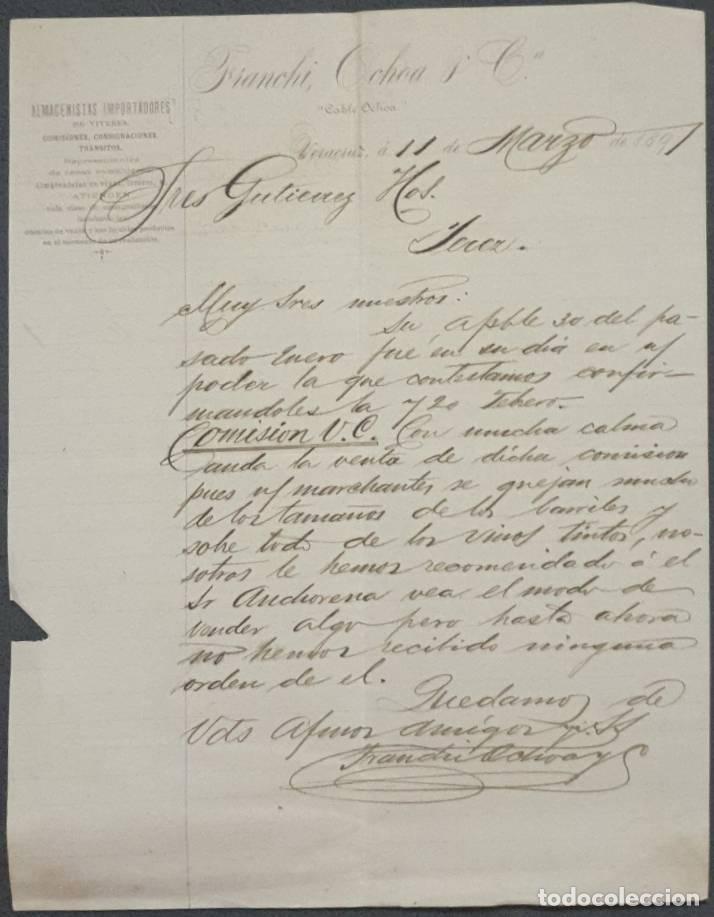 Franchi, Ochoa y Cª
"Cable Ochoa"
ALMACENISTAS IMPORTADORES
DE VIVERES,
COMISIONES, CONSIGNACIONES
TRANSITOS.
Representantes
de casas
ATIENDEN
Veracruz, á 11 de Marzo de 1897
Sres Gutierrez Hos.
Jerez.
Muy Sres nuestros:
Su Apble 30 del pa-
sado Enero fué en su dia en n/
poder la que contestamos confir-
mandoles la 7/20 Febero.
Comision V.C. Con mucha calma
anda la venta de dicha comision
pues n/ marchantes se quejan mucho
de los tamaños de los barriles y
sobre todo de los vinos tintos, no-
sotros le hemos recomendado á el
Sr Anchorena vea el modo de
vender algo pero hasta ahora
no hemos recibido ninguna
orden de el.
Quedamos de
Vds Afmos Amigos y. SS
Franchi Ochoa y C
todocoleccion